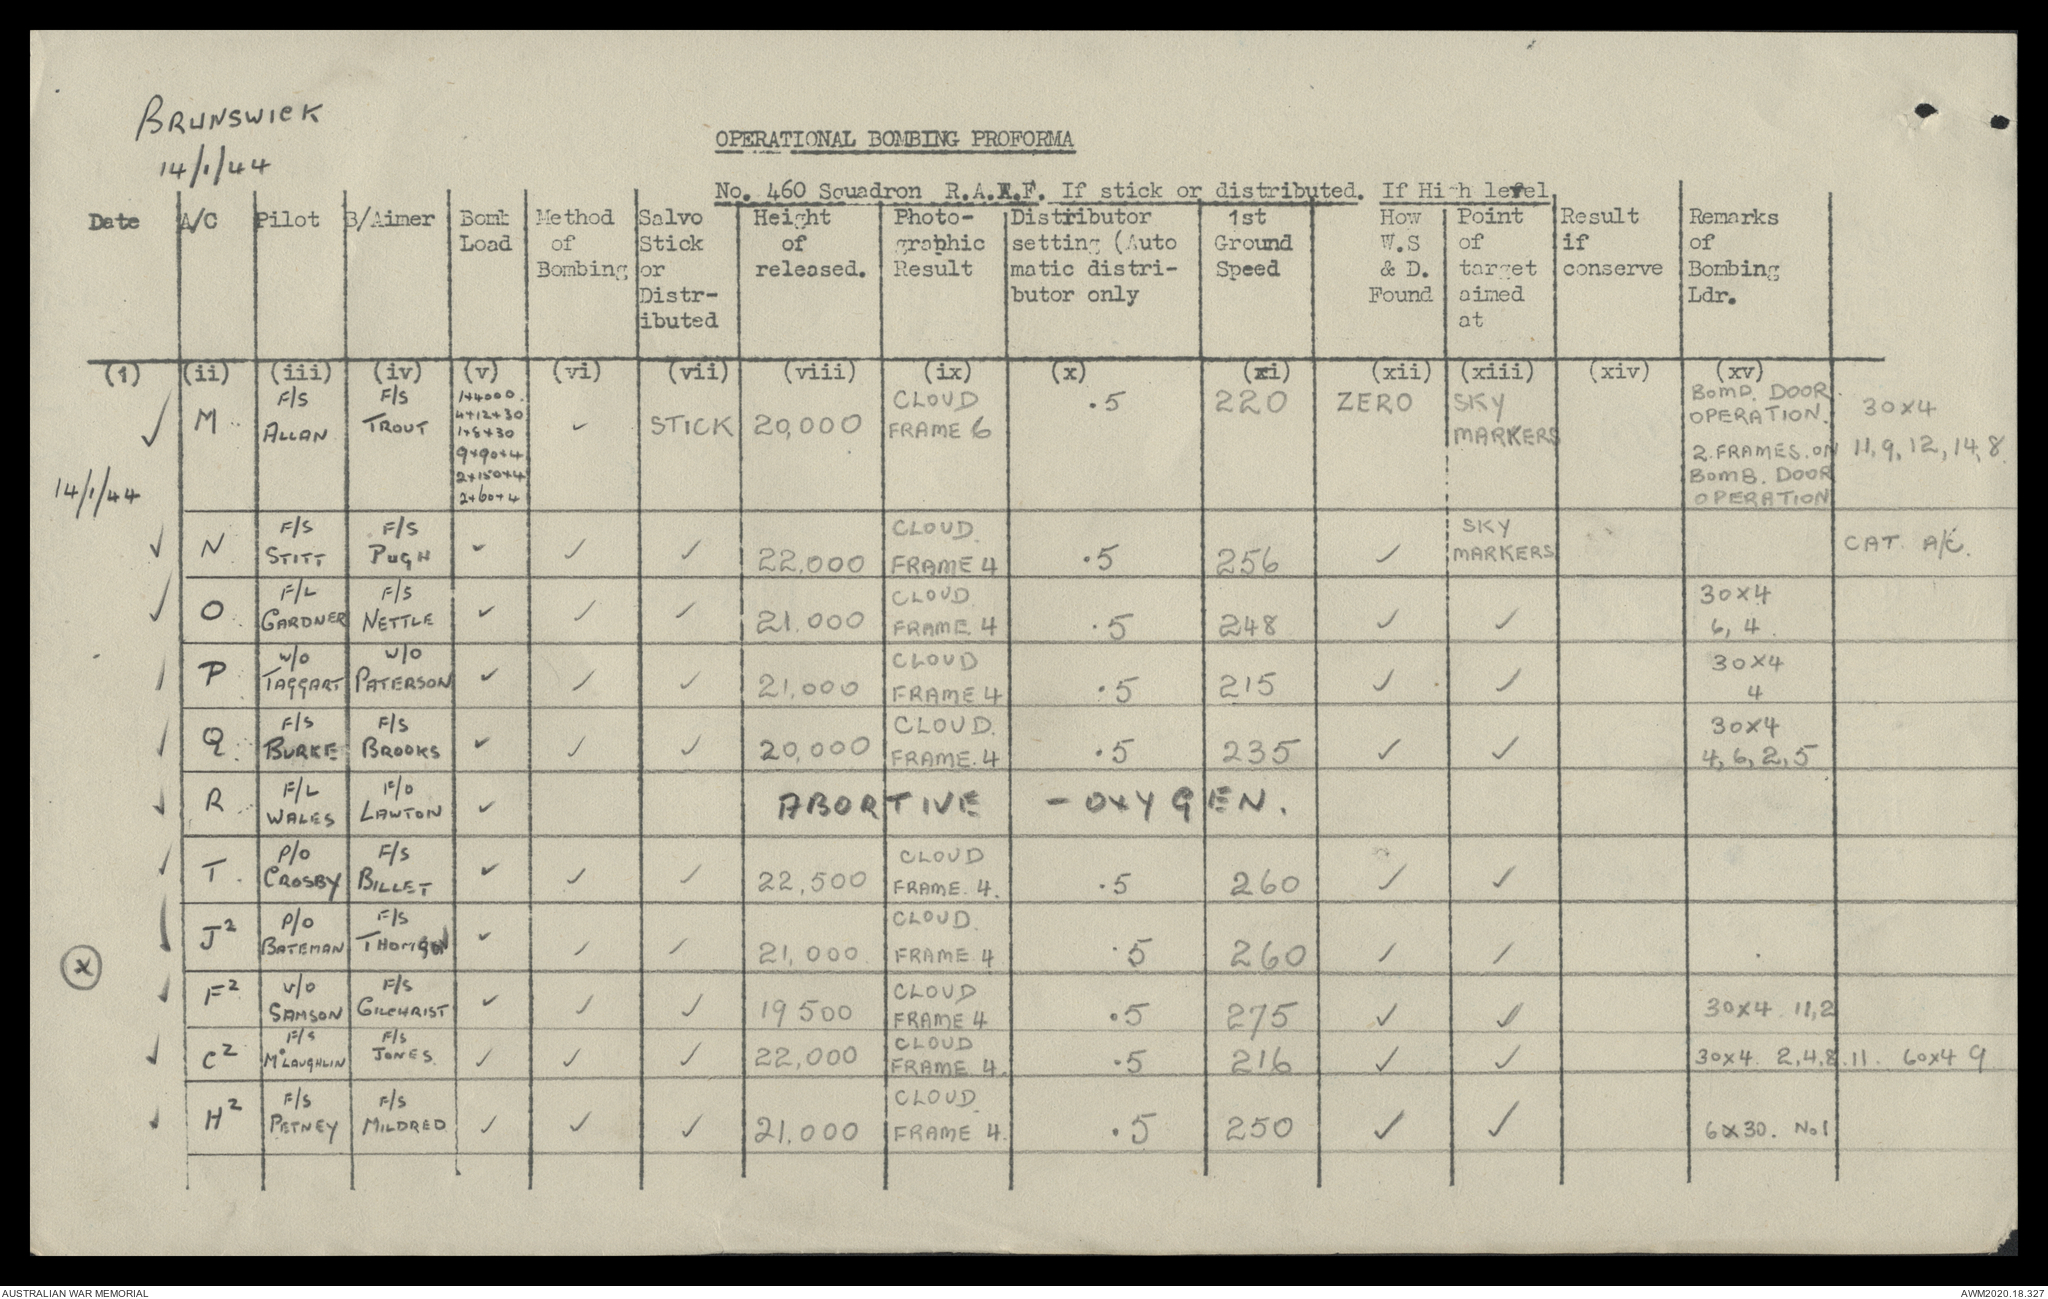 BRUNSWICK
14/1/44
OPERATIONAL BOMBING PROFORMA
No. 460 Squadron R.A.A.F. If stick or distributed. If High level
Date A/C Pilot B/Aimer Bomb Load Method of Bombing Salvo Stick or Distr-ibuted Height of released. Photo-graphic Result Distributor setting (Auto matic distri-butor only 1st Ground Speed How W.S & D. Found Point of target aimed at Result if conserve Remarks of Bombing Ldr.
(i) (ii) (iii) (iv) (v) (vi) (vii) (viii) (ix) (x) (xi) (xii) (xiii) (xiv) (xv)
✓ M F/S ALLAN F/S TROUT 1x4000. 4x12x30 1x8x30 9x90x4 2x150x4 2x60x4 ✓ STICK 20,000 CLOUD FRAME 6 .5 220 ZERO SKY MARKERS BOMB. DOOR OPERATION. 2 FRAMES. ON BOMB. DOOR OPERATION 30x4 11, 9, 12, 14, 8.
14/1/44
✓ N F/S STITT F/S PUGH ✓ ✓ ✓ 22,000 CLOUD. FRAME 4 .5 256 ✓ SKY MARKERS CAT. A/C.
✓ O F/L GARDNER F/S NETTLE ✓ ✓ ✓ 21.000 CLOUD FRAME. 4 .5 248 ✓ ✓ 30x4 6, 4
✓ P W/O TAGGART W/O PATERSON ✓ ✓ ✓ 21,000 CLOUD FRAME 4 .5 215 ✓ ✓ 30x4 4
✓ Q F/S BURKE F/S BROOKS ✓ ✓ ✓ 20,000 CLOUD. FRAME. 4 .5 235 ✓ ✓ 30x4 4, 6, 2, 5
✓ R F/L WALES F/O LAWTON ✓ ABORTIVE - OXYGEN.
✓ T P/O CROSBY F/S BILLET ✓ ✓ ✓ 22,500 CLOUD FRAME. 4. .5 260 ✓ ✓
✓ J² P/O BATEMAN F/S THOMSON ✓ ✓ ✓ 21,000 CLOUD. FRAME 4 .5 260 ✓ ✓
X
✓ F² W/O SAMSON F/S GILCHRIST ✓ ✓ ✓ 19500 CLOUD FRAME 4 .5 275 ✓ ✓ 30x4 11, 2
✓ C² F/S McLAUGHLIN F/S JONES ✓ ✓ ✓ 22,000 CLOUD FRAME 4. .5 216 ✓ ✓ 30x4. 2, 4, 8, 11. 60x4 9
✓ H² F/S PETNEY F/S MILDRED ✓ ✓ ✓ 21,000 CLOUD. FRAME 4. .5 250 ✓ ✓ 6x30. No1
AUSTRALIAN WAR MEMORIAL
AWM2020.18.327